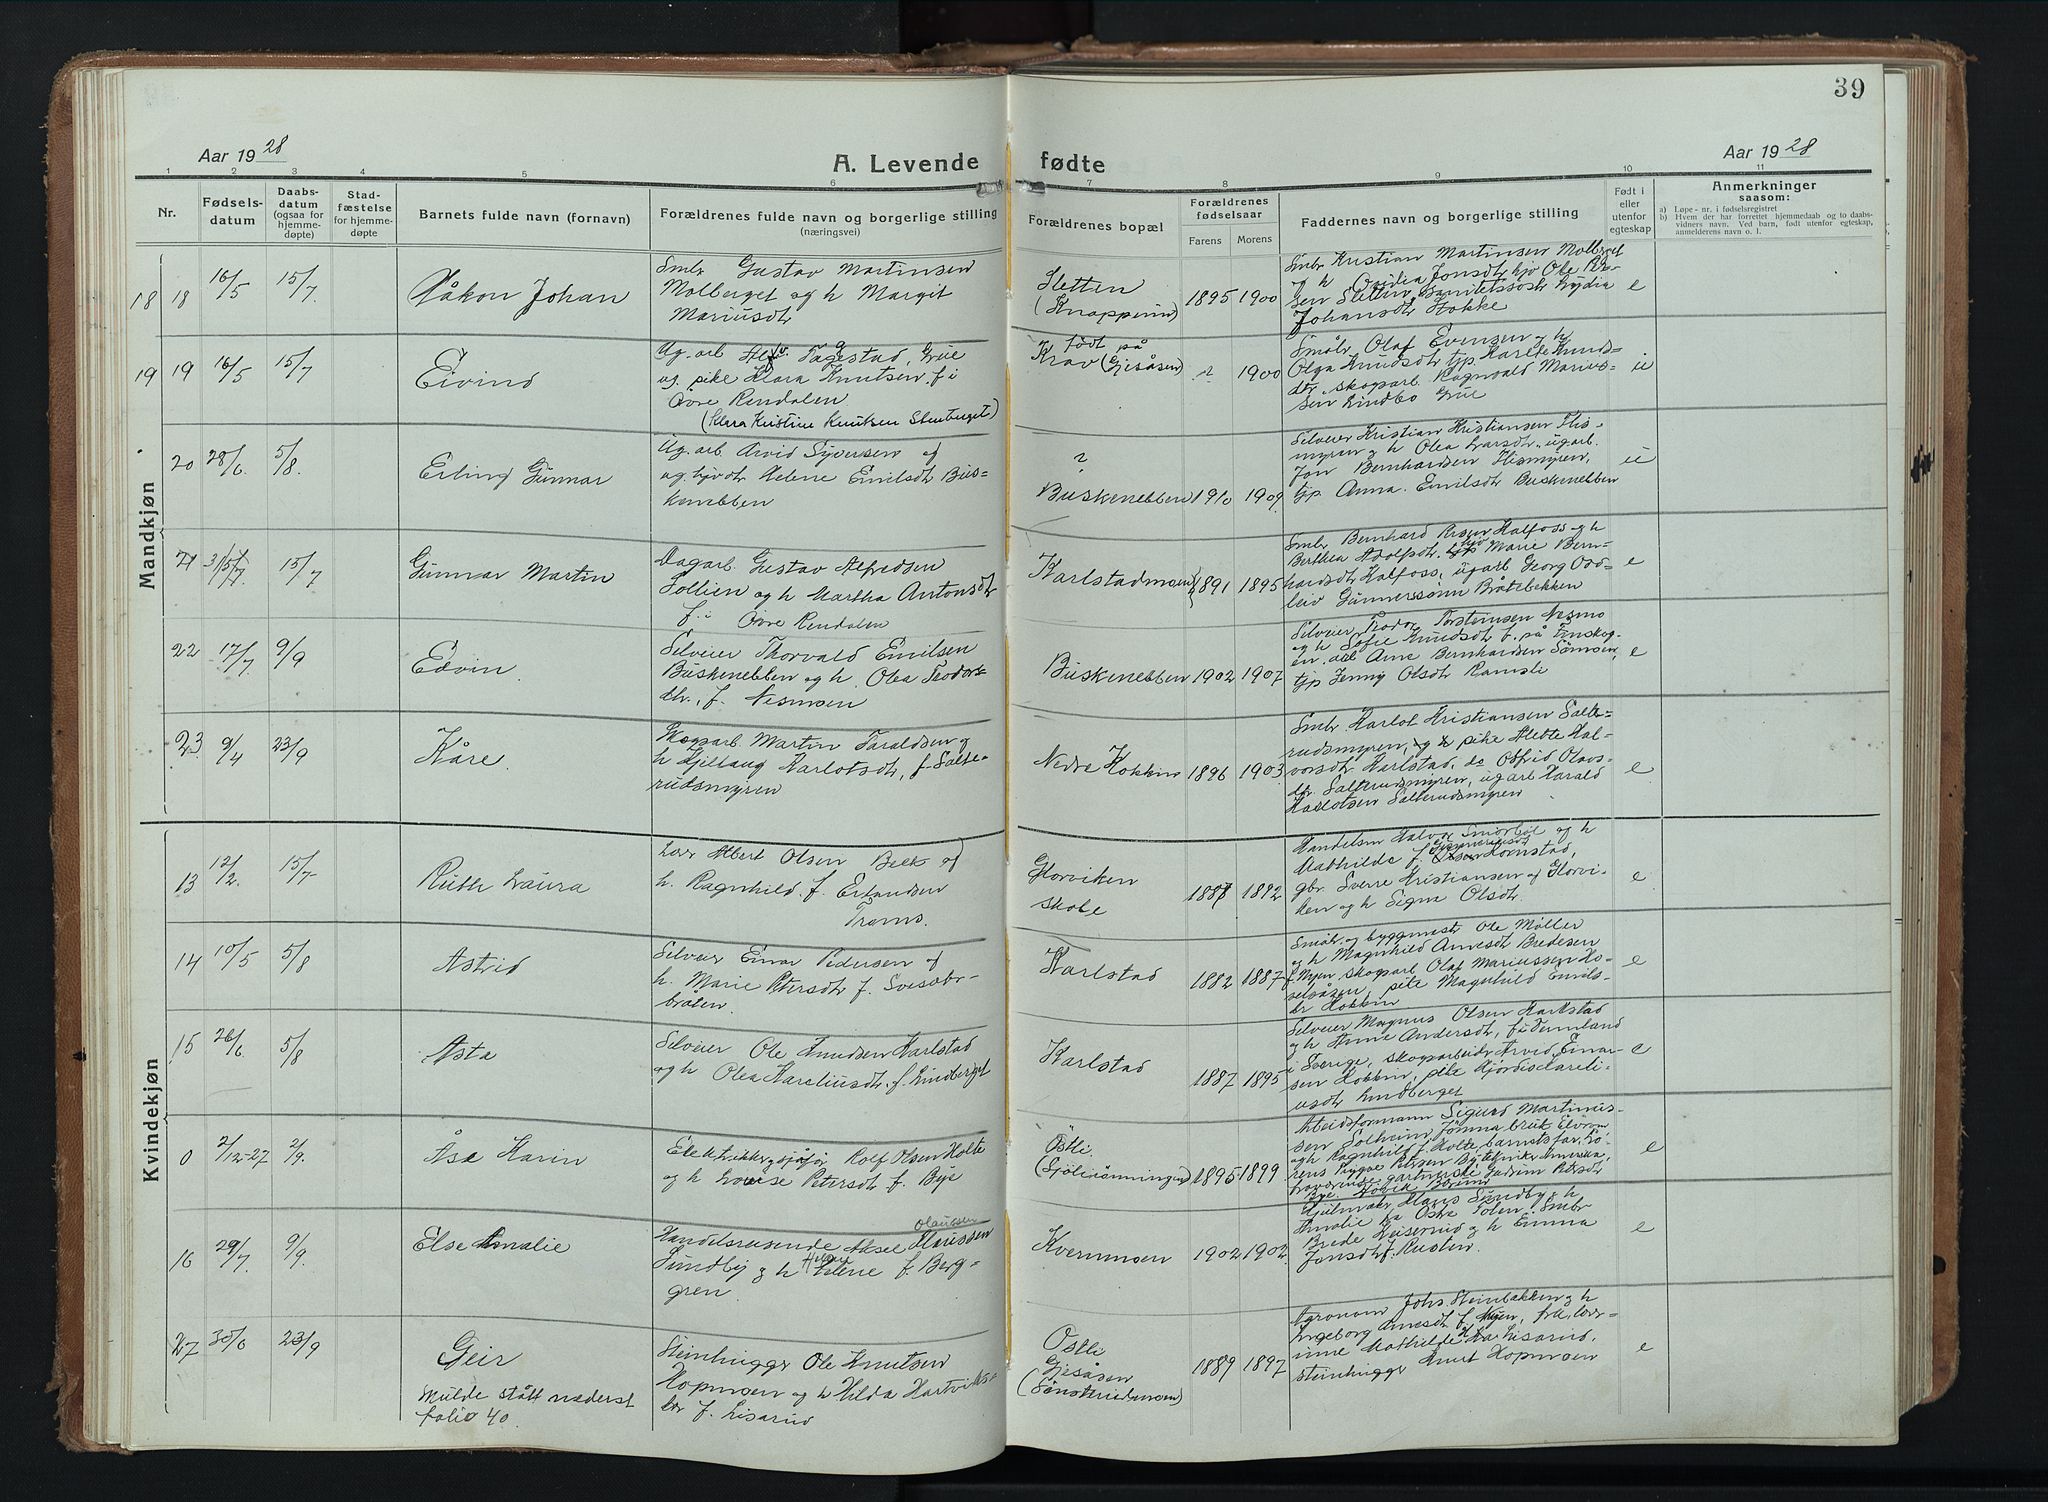 39
Aar 1928
A. Levende fødte
Aar 1928
1 2 3 4 5 6 7 8 9 10 11
Nr.
Fødsels-
datum
Daabs-
datum
(ogsaa for
hjemme-
døpte)
Stad-
fæstelse
for hjemme-
døpte
Barnets fulde navn (fornavn)
Forældrenes fulde navn og borgerlige stilling
(næringsvei)
Forældrenes bopæl
Forældrenes
fødselsaar
Farens Morens
Faddernes navn og borgerlige stilling
Født i
eller
utenfor
egteskap
Anmerkninger
saasom:
a) Løpe-nr. i fødselsregistret
b) Hvem der har forrettet hjemmedaab og to daabs-
vidners navn. Ved barn, født utenfor egteskap,
anmelderens navn o. l.
Mandkjøn
18 18 16/5 15/7
Håkon Johan
Smbr Gustav Martinsen
Molberget og h Margit
Mariusdtr
Sletten
1895 1900
Smbr Kristian Martinsen Molberget
og h Ovidia Jonsdtr hjv Ole
sen Sletten, Sanitetssøstr Lydia
Johansdtr Stokke
e
19 19 16/5 15/7
Eivind
Ug. arb Tagestad, Grue
ug. pike Klara Knutsen f i
Øvre Rendalen
(Klara Kristine Knutsen Stenberget)
født på
Krav (Gjesåsen)
? 1900
Småbr Olaf Evensen og h
Olga Knudsdtr tjp Karlde Knuds-
dtr, skogarb Ragnvald Marius-
sen Lindbo Grue
u
20 28/6 5/8
Erling Gunnar
Ug. arb Arvid Syversen af
ug. hjvdtr Helene Emilsdtr Bus-
kenebben
?
Buskenebben 1910 1909
Selveier Kristian Kristiansen His-
myren og h Olea Larsdtr, ugarb.
Jon Bernhardsen Hismyren,
tjp Anna Emilsdtr Buskenebben
u
21 31/5 15/7
Gunnar Martin
Dagarb. Gustav Alfredsen
Sollien og h Martha Antonsdtr
f. i Øvre Rendalen
Karlstadmoen 1891 1895
Smbr Bernhard Kalfoss og h
Berthea Adolfsdtr. Marie Bern-
hardsdtr Kalfoss, ugarb Georg Odd-
leiv Gunnerssønn Bråtebekken
e
22 17/7 9/9
Edvin.
Selveier Thorvald Emilsen
Buskenebben og h. Olea Teodors-
dtr., f. Nesmoen
Buskenebben 1902 1907
Selveier Teodor Torsteinsen Nesmo
og h Sofie Knudsdtr f. på Finskog-
en, arb Arne Bernhardsen Sønsen,
tjp Jenny Olsdtr Ramsli
e
23 9/4 23/9
Kåre.
Skogarb. Martin Taraldsen og
h Gjellaug Karlotsdtr, f. Salte-
rudsmyren
Nedre Kokkin 1896 1903
Smbr Karlot Kristiansen Salte-
rudsmyren, pike Alette Hal-
vorsdtr Karlstad, do Ostfrid Olavs-
dtr. Salterudsmyren, ugarb Harald
Karlotsen Salterudsmyren
e
Kvindekjøn
13 12/2. 15/7
Ruth Laura
Lær Albert Olsen Bekk og
h. Ragnhild f. Erlandsen
Troms.
Glorviken
skole
1887 1892
Handelsm Halvor Smørbøl og h
Mathilde f. Hornstad,
gbr. Sverre Kristiansen af Glorvi-
ken og h Signe Olsdtr.
e
14 10/5 5/8
Astrid
Selveier Einar Pedersen af
h. Marie Petersdtr f. Svesabr-
bråten
Karlstad
1882 1887
Småbr. og byggmestr Ole Møller
og h Magnhild Arnesdtr Bredesen
f. Myen, skogarb Olaf Mariussen Ho-
velsåsen, pike Magnhild Emils-
dtr Kokkin
e
15 26/6 5/8
Asta
Selveier Ole Knudsen Karlstad
og h Olea Kareliusdtr. f. Lindberget
Karlstad
1887 1895
Selveier Magnus Olsen Karlstad
og h Anna Andersdtr, f. i
i Sverige, skogarbeidr Arvid Einar-
sen Kokkin, pike Hjørdis Kareli-
usdtr Lindberget
e
0 2/12-27 2/9.
Åse Karin
Rolf Olsen Holte
og h Louise Petersdtr f. Bye
Østli
1895 1899
Arbeidsformann Sigurd Martinius-
sen Solheim
og h Ragnhild f. Holte, barnets far,
e
16 29/7. 9/9.
Else Amalie
Olaussen
Handelsreisende Aksel Klaussen
Sundby og h Helene f. Berg-
gren
Kvernmoen 1902 1902
Hans Sundby og h
Amalie fra Østre Toten, smbr
Brede Keiserud og h Emma
Jonsdtr f. Rusten.
e
27 30/6 23/9
Geir
Skulde stått nederst
folio 40.
Steinhugger Ole Knutsen
Kopmoen og h Hilda Hartviks-
dtr f. Lisarud
Østli
Gjesåsen
1889 1897
Agronom Johs Steinbakken og h
Ingeborg Arnesdtr f. Myen, frk. lær-
inne Mathilde Lisarud,
steinhugger Knut Kopmoen
e